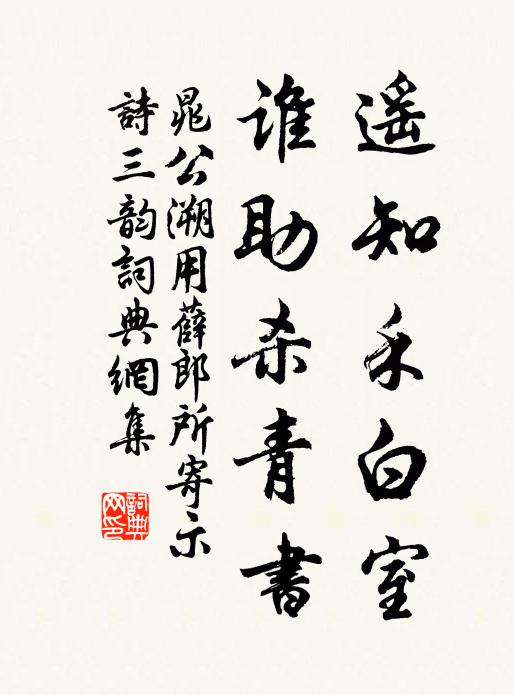 遥知生白室
谁助杀青書
晁公溯用薛郎所寄示
詩三韵詞典網集
詞典网印